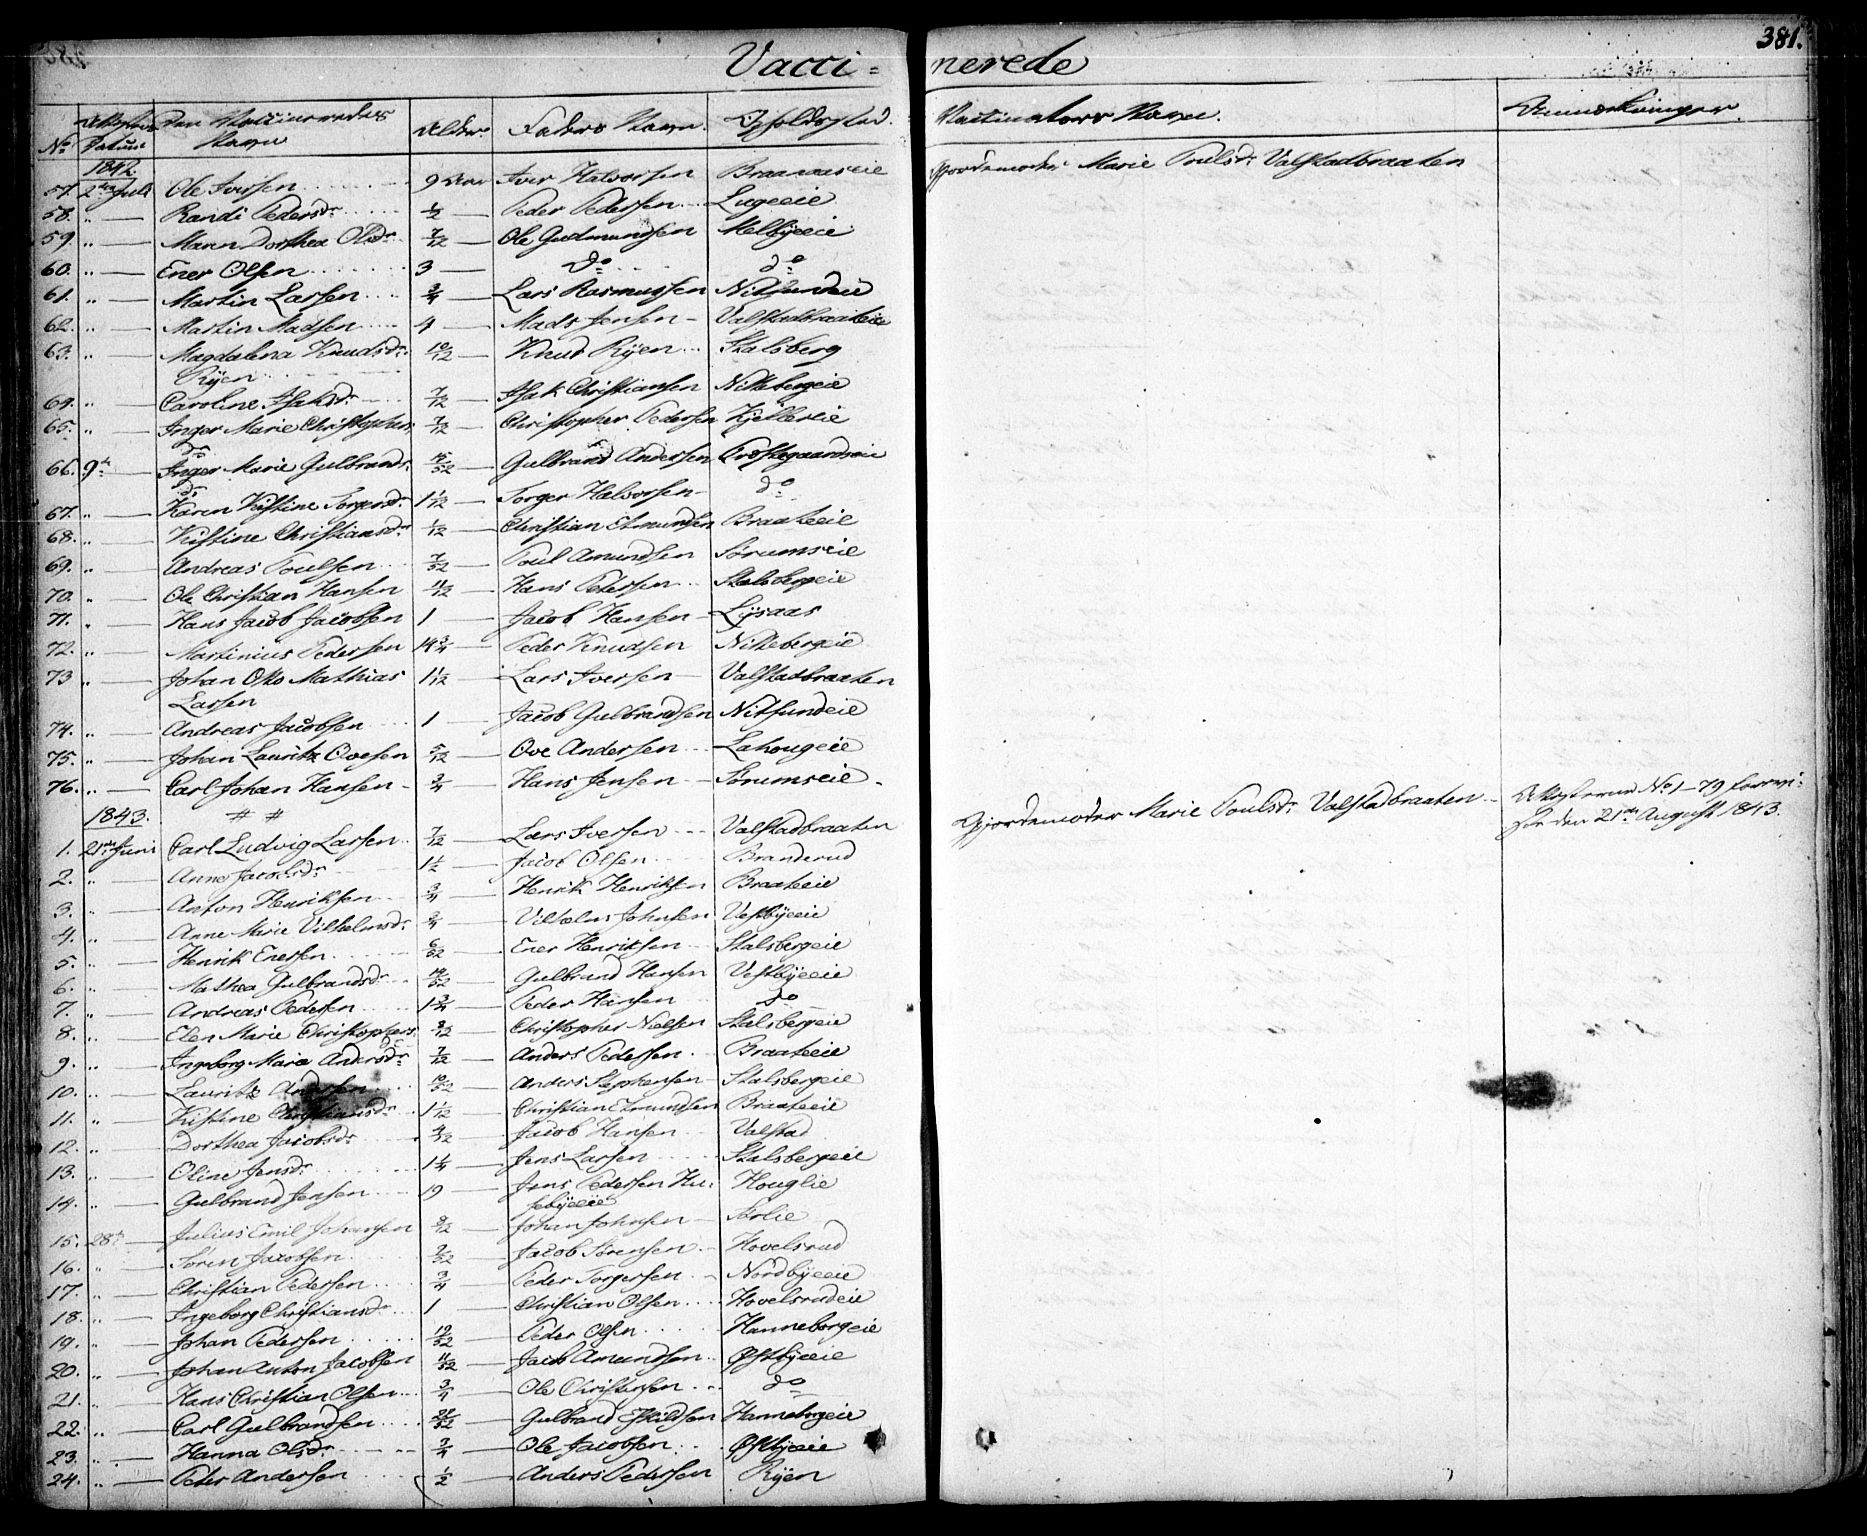 381.
Vacci= nerede
No Attestens Datum Den Vaccineredes Navn Alder Faders Navn. Opholdssted. Vaccinators Navn. Anmærkninger.
1842.
57. 2den Juli Ole Iversen 9 Iver Halvorsen Gjordemoder Marie Poulsdr Valstadbraaten
58. " — Randi Pedersdr ½ — Peder Pedersen Lugeeie
59. " — Maren Dorthea Olsdr 7/12 — Ole Gudmundsen Melbÿeeie
60. " — Ener Olsen 3 — do do
61. " — Martin Larsen 3/4 — Lars Rasmussen Nitsundeie
62. " — Martin Madsen 4 — Mads Jensen Valstadbraateie
63. " Magdalena Knudsdr 10/12 — Knud Rÿen Stalsberg
Rÿen
64. " Caroline Isaksdr 7/12 — Isak Christiansen Nittebergeie
65. " Inger Marie Christophers 7/12 — Christopher Pedersen Kjellerеie
dr
66. 9de — Inger Marie Gulbrands 15/52 — Gulbrand Andersen
dr
67. " — Karen Kistine Torgersdr 1 1/12 — Torger Halvorsen do
68. " — Kistine Christiansdr 1/12 — Christian Edmundsen Braateeie
69. " — Andreas Poulsen 7/52 — Poul Amundsen Sørumseie
70. " — Ole Christian Hansen 11/12 — Hans Petersen Stalsbergeie
71. " — Hans Jacob Jacobsen 1 Jacob Hansen Lÿsaas
72. " — Martinius Pedersen 14 3/4 — Peder Knudsen Nittebergeie
73 " — Johan Otto Mathias 1 1/12 — Lars Iversen Valstadbraaten
Larsen
74. " — Andreas Jacobsen 1 Jacob Gulbrandsen Nitsundeie
75. " — Johan Lauritz Ovesen 5/12 — Ove Andersen Lahougeie
76. " — Carl Johan Hansen 3/4 — Hans Jensen Sørumseie
1843. # #
1. 21de Juni Carl Ludvig Larsen 7/12 — Lars Iversen Valstadbraaten Gjordemoder Marie Poulsdr Valstadbraaten Attesterne No 1–79
den 21de August 1843.
2. " — Anne Jacobsdr 1½ — Jacob Olsen Branderud
3. " — Anton Henriksen 3/4 — Henrik Henriksen Braateeie
4. " — Anne Marie Vilhelmsdr 3/4 — Vilhelm Johnsen Vestbÿeeie
5. " — Henrik Enersen 6/52 — Ener Henriksen Stalsbergeie
6. " — Mathea Gulbrandsdr /52 — Gulbrand Hansen Vestbÿeeie
7. " — Andreas Pedersen 1 3/4 — Peder Hansen do
8. " — Elen Marie Christophers dr 9/12 — Christopher Nielsen Stalsbergeie
9. " — Ingeborg Marie Andersdr 7/12 — Anders Pedersen Braateeie
10. " — Lauritz Andersen 10/52 — Anders Stephensen Stalsbergeie
11. " — Kistine Christiansdr 1 1/12 — Christian Edmundsen Braateeie
12. " — Dorthea Jacobsdr 4/12 — Jacob Hansen Valstad
13. " — Oline Jensdr 1¼ — Jens Larsen Stalsbergeie
14. " — Gulbrand Jensen 19 — Jens Pedersen Hu- Houglie
sebÿeeie
15. 28de — Julius Emil Johansen 9/12 — Johan Johnsen Sørlie
16. " — Søren Jacobsen 7/52 — Jacob Sørensen Hovelsrud
17. " — Christian Pedersen 3/4 — Peder Torgersen Nordbÿeeie
18. " — Ingeborg Christiansdr 1 Christian Olsen Hovelsrudeie
19. " — Johan Pedersen 19/52 — Peder Olsen Hanneborgeie
20. " — Johan Anton Jacobsen 11/52 — Jacob Amundsen Østbÿeeie
21. " — Hans Christian Olsen 3/4 — Ole Christensen do
22. " — Carl Gulbrandsen /52 — Gulbrand Eskildsen Hanneborgeie
23. " — Hanna Olsdr 3/4 — Ole Jacobsen Østbÿeeie
24. " — Peter Andersen ½ — Anders Pedersen Rÿen